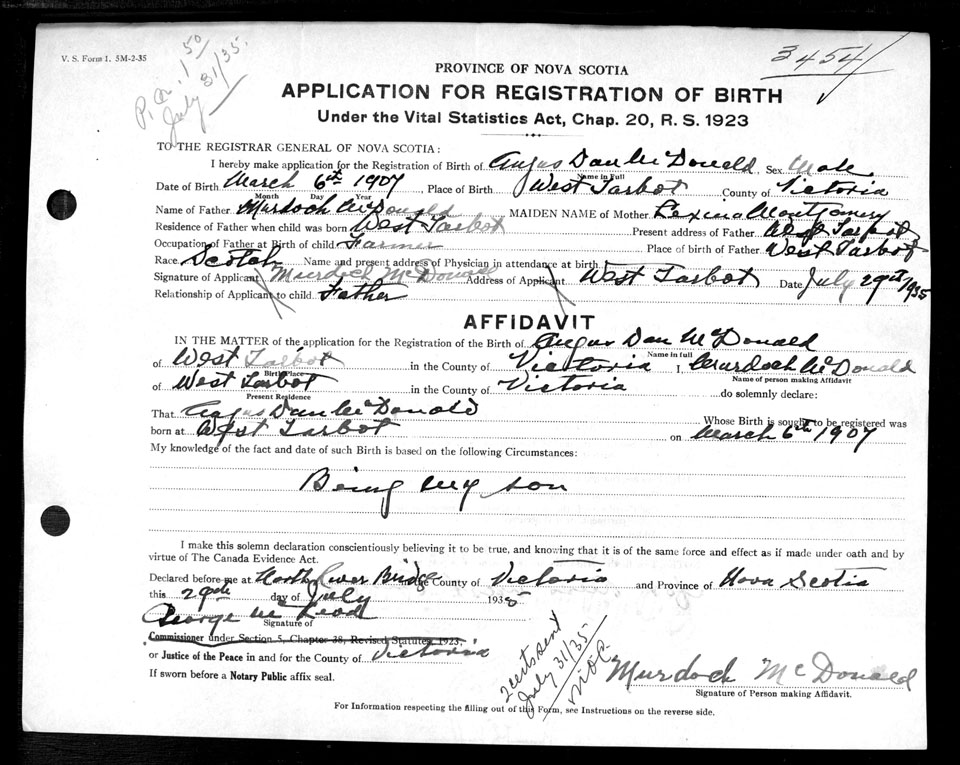 V. S. Form 1. 5M-2-35
P.O. 1 50
July 31/35.
3454
PROVINCE OF NOVA SCOTIA
APPLICATION FOR REGISTRATION OF BIRTH
Under the Vital Statistics Act, Chap. 20, R. S. 1923
TO THE REGISTRAR GENERAL OF NOVA SCOTIA:
I hereby make application for the Registration of Birth of Angus Dan McDonald Sex Male
Name in Full
Date of Birth March 6th 1907, Place of Birth West Tarbot County of Victoria
Month Day Year
Name of Father Murdoch McDonald MAIDEN NAME of Mother Lexina Montgomery
Residence of Father when child was born West Tarbot Present address of Father West Tarbot
Occupation of Father at Birth of child Farmer Place of birth of Father West Tarbot
Race Scotch Name and present address of Physician in attendance at birth
Signature of Applicant Murdoch McDonald Address of Applicant West Tarbot Date July 29th 1935
Relationship of Applicant to child Father
AFFIDAVIT
IN THE MATTER of the application for the Registration of the Birth of Angus Dan McDonald
Name in full
of West Tarbot in the County of Victoria I, Murdoch McDonald
Birth Place Name of person making Affidavit
of West Tarbot in the County of Victoria do solemnly declare:
Present Residence
That Angus Dan McDonald Whose Birth is sought to be registered was
born at West Tarbot on March 6th 1907
My knowledge of the fact and date of such Birth is based on the following Circumstances:
Being my son
I make this solemn declaration conscientiously believing it to be true, and knowing that it is of the same force and effect as if made under oath and by
virtue of The Canada Evidence Act.
Declared before me at North River Bridge the County of Victoria and Province of Nova Scotia
this 29th day of July 1935
George McLeod
Signature of
Commissioner under Section 5, Chapter 38, Revised Statutes 1923,
or Justice of the Peace in and for the County of Victoria
If sworn before a Notary Public affix seal.
2 certs sent
July 31/35
Murdoch McDonald
Signature of Person making Affidavit.
For Information respecting the filling out of this Form, see Instructions on the reverse side.